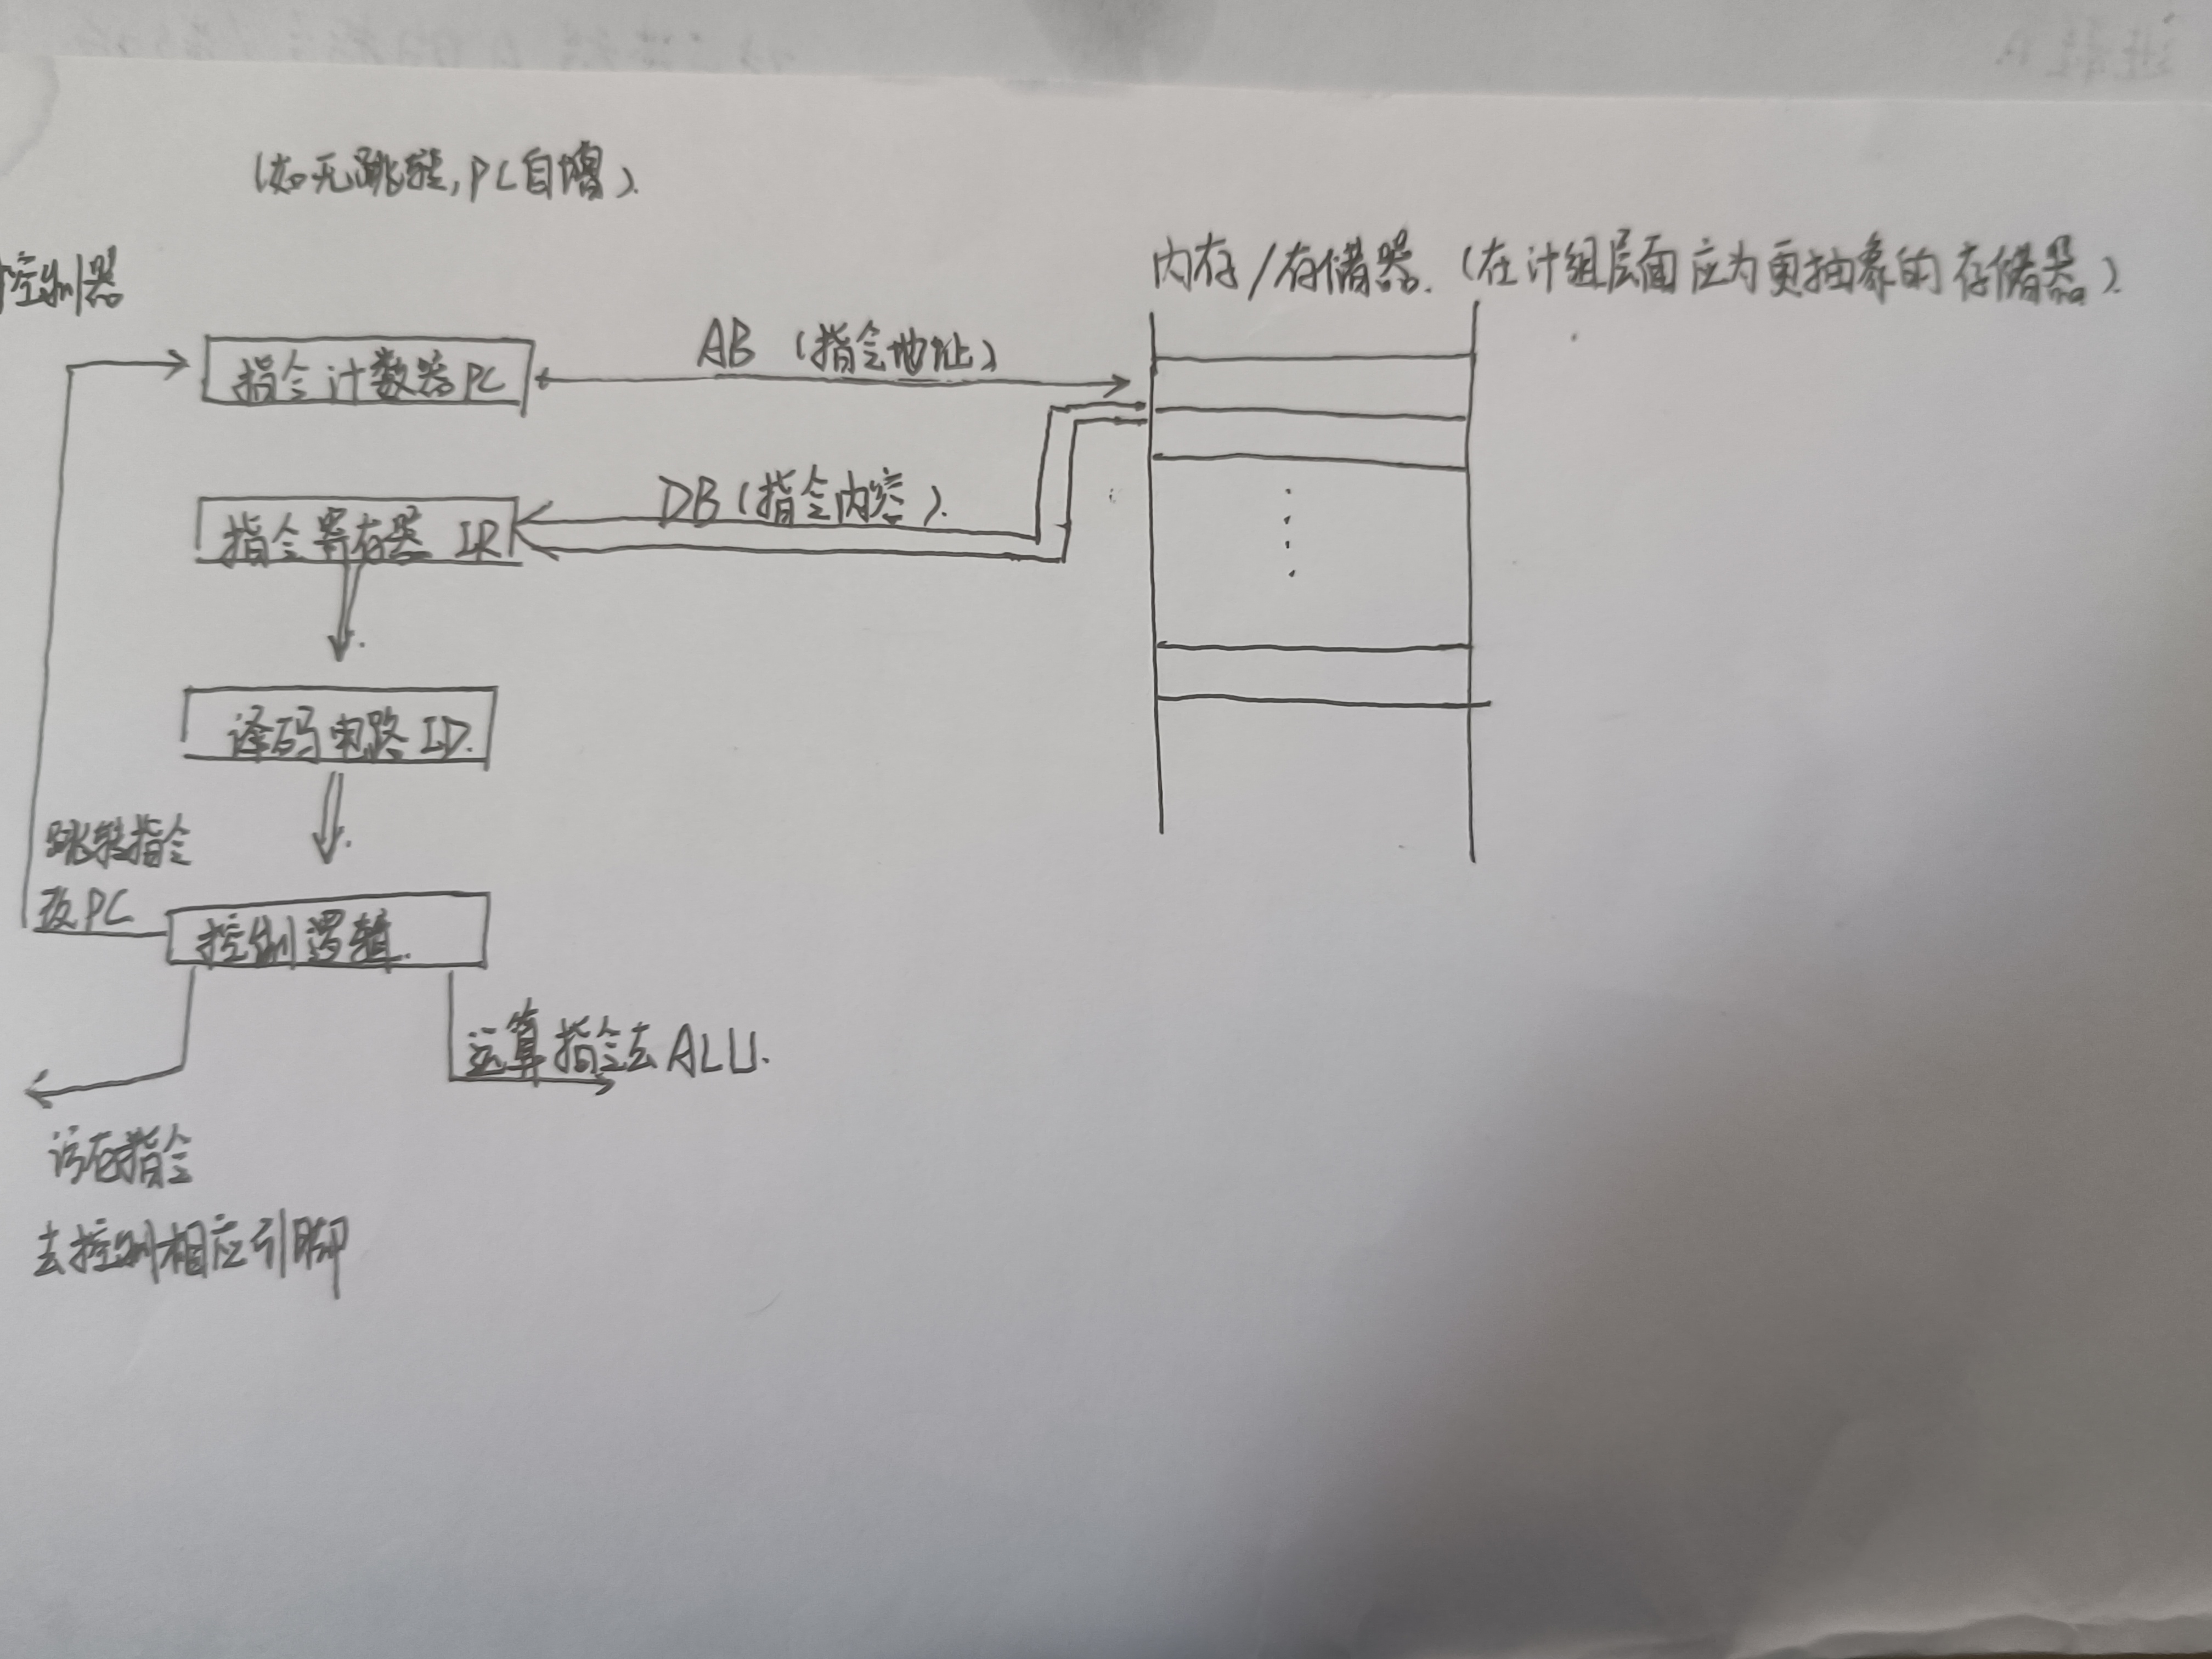 (如无跳转,PC自增).
控制器
内存/存储器.(在计组层面应为更抽象的存储器).
指令计数器PC
AB (指令地址)
指令寄存器 IR
DB(指令内容).
译码电路ID.
跳转指令
改PC
控制逻辑.
运算指令去ALU.
访存指令
去控制相应引脚